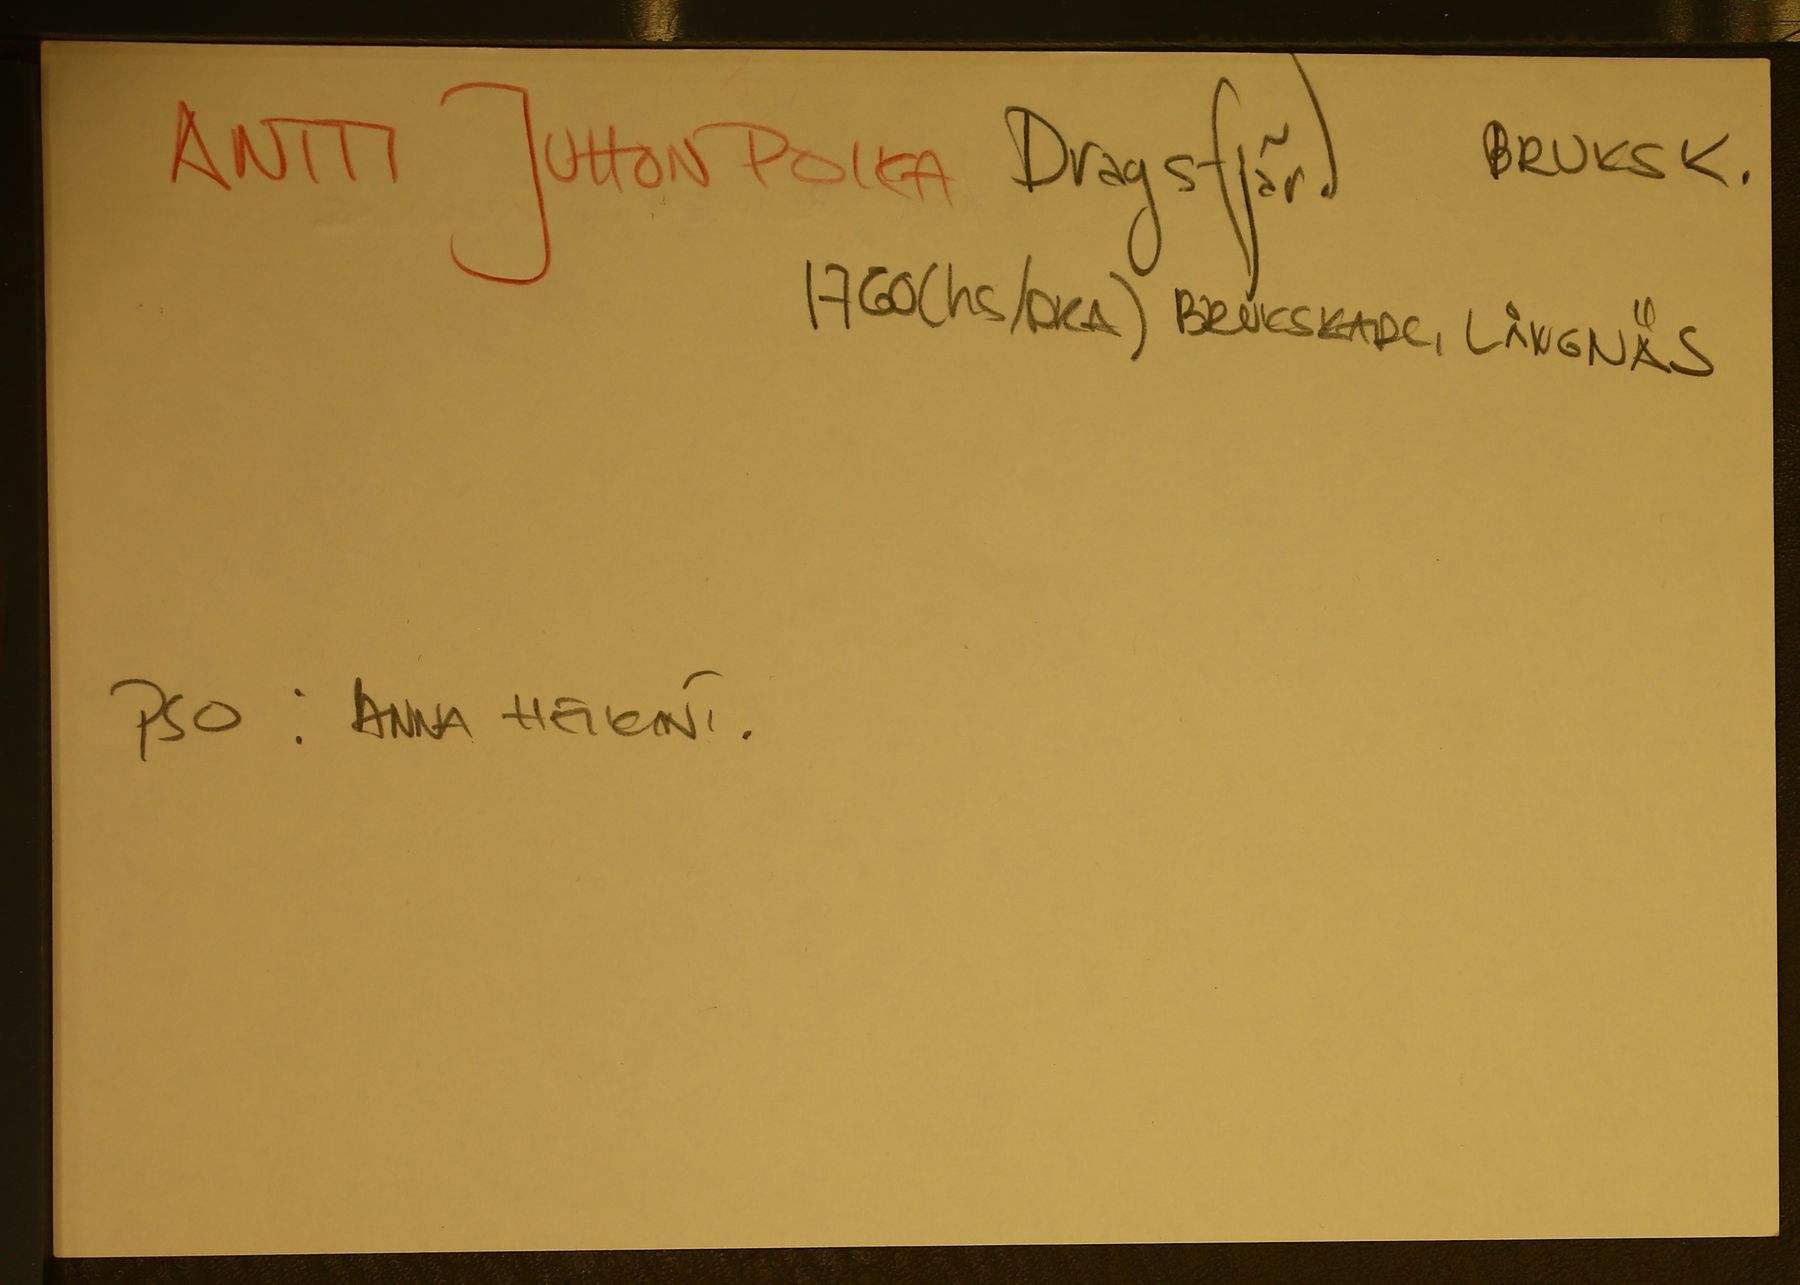 ANTTI JUHONPOIKA Dragsfjärd BRUKSK.
1760(hs/OKA) BRUKSKARL, LÅNGNÄS
PSO : ANNA HEIKINT.